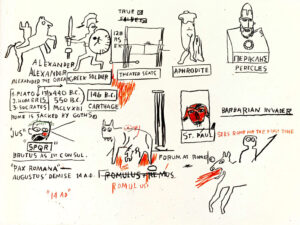 TRUE
ALEXANDER
ALEXANDER
ALEXANDER THE GREAT
GREEK SOLDIER
THEATER SEATS
APHRODITE
ΠΕΡΙΚΛΗΣ
PERICLES
1. PLATO
2. HOMER IS
3. SOCRATES
550 B.C.
146 B.C.
CARTHAGE
ROME IS SACKED BY GOTHS
"JUS"
SPQR
BRUTUS AS 1ST CONSUL.
"PAX ROMANA"
AUGUSTUS' DEMISE 14 A.D.
"14 AD"
ROMULUS REMUS
ROMULUS
FORUM
ST. PAUL
BARBARIAN INVADER
SEES ROME FOR THE FIRST TIME